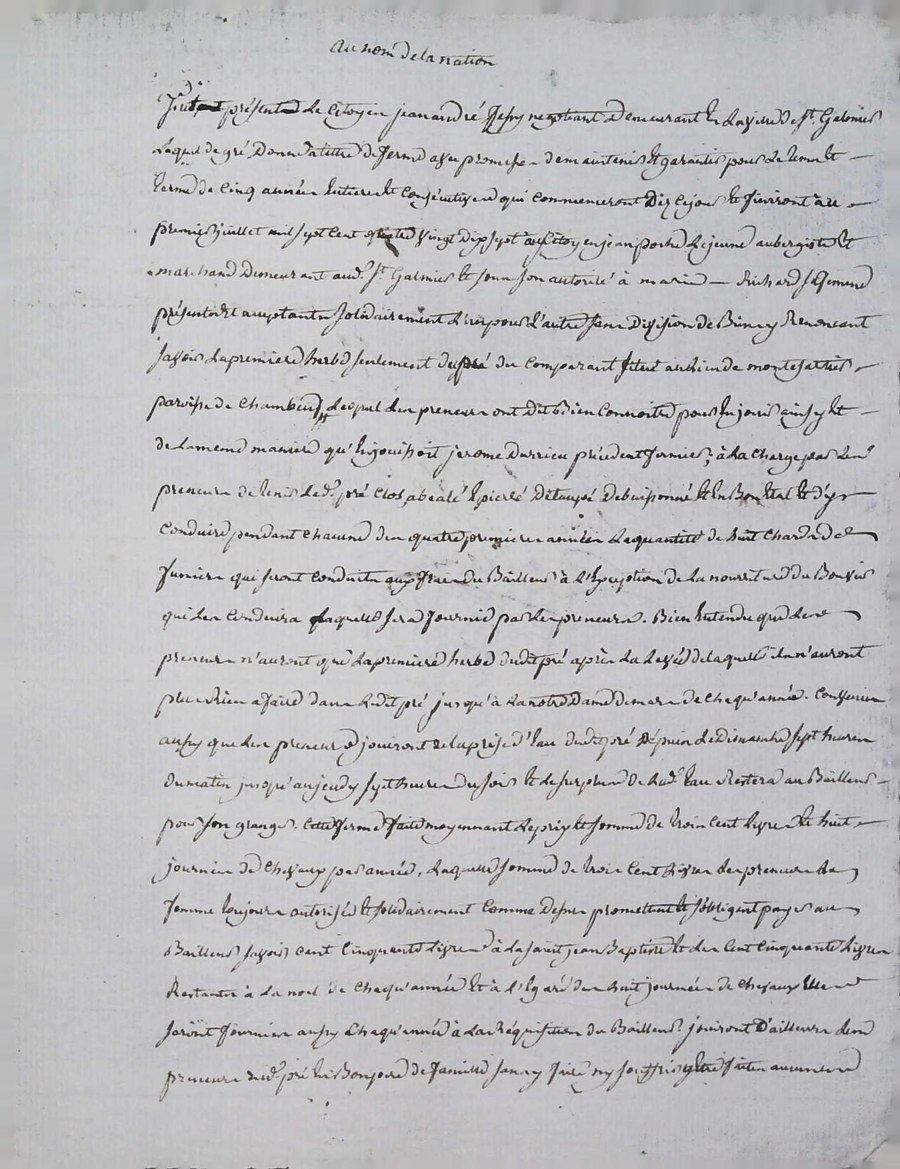 au nom de la nation
fut présent le Citoyen jean andré negotiant demeurant en la ville de st. Galmier
Lequel de gré donne a titre de ferme avec promesse de maintenir et garantir pour le tems et
terme de Cinq années entieres et Consécutives qui commenceront dèz ce jour et finiront au
premier juillet mil sept cent quatre vingt dix sept au Citoyen jean poche le jeune aubergiste et
marchand demeurant aud. st. Galmier et sous son autorité à marie Richard sa femme
présents et acceptants solidairement l'un pour l'autre sans division de Biens y Renoncant
savoir la premiere herbe seulement du pré du comparant situé au lieu de
paroisse de Chambeuf, Lequel les preneurs ont dit bien connoitre pour en jouir ainsy et
de la meme maniere qu'en jouissoit jerome durrieu précédent fermier, à la Charge par les
preneurs de tenir led. pré Clos, épierré détaupé debuissonné et en Bon état et d'y
Conduire pendant chacune des quatre premieres années la quantité de huit Chards de
fumier qui seront conduits aux frais du Bailleur à l'Exception de la nourriture du Bouvier
qui les Conduira laquelle sera fournie par les preneurs. Bien entendu que les
preneurs n'auront que la premiere herbe dudit pré après la Levée de laquelle ils n'auront
plus Rien a faire dans ledit pré jusqu'à la notre Dame de mars de chaqu'année. Convenu
aussy que les preneurs jouiront de la prise d'Eau dudit pré depuis le dimanche sept heures
du matin jusqu'au jeudy sept heures du soir et le surplus de lad. Eau Restera au Bailleur
pour son grange. Cette ferme faite moyennant le prix et somme de trois Cent livres et huit
journées de chevaux par année, Laquelle somme de trois Cent livres les preneurs la
femme toujours autorisée et solidairement comme dessus promettent et s'obligent payer au
Bailleur savoir cent Cinquante livres à la saint jean Baptiste et les Cent Cinquante livres
Restantes à la noel de chaqu'année et à l'Egard des huit journées de Chevaux Elles
seront fournies aussy Chaqu'année à la Réquisition du Bailleur. jouiront d'ailleurs les
preneurs dud. pré en Bon pere de famille sans y faire ny souffrir etre faites aucunes